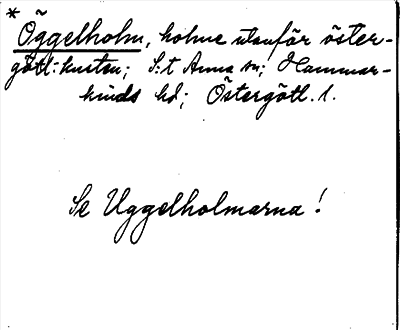 * Öggelholm, holme utanför öster-
götl. kusten; S:t Anna sn; Hammar-
kinds hd; Östergötl. l.
Se Uggelholmarna!